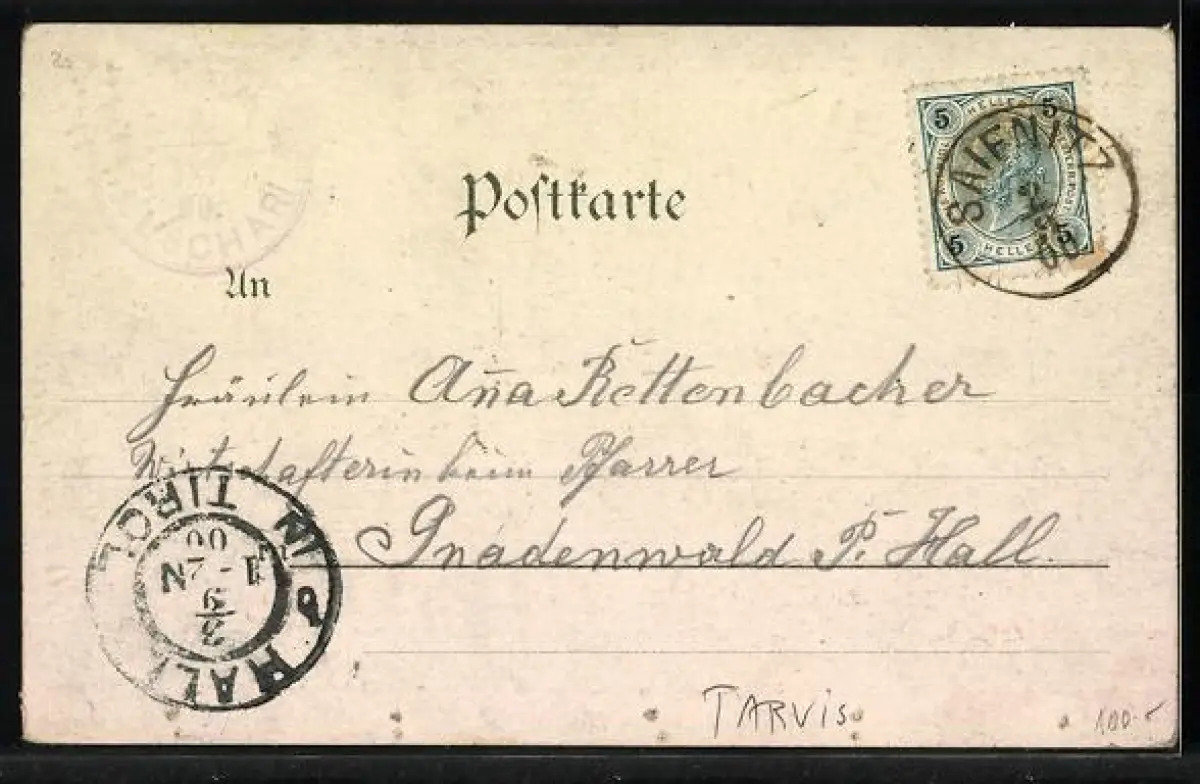 Postkarte
5 HELLER 5
5 HELLER 5
SAIFNITZ
00
USCHARI
An
Fräulein Anna Rettenbacher
Wirtschafterin beim Pfarrer
Gnadenwald P. Hall.
HALL IN TIROL
3/9
1-2N
00
TARVIS
100.-